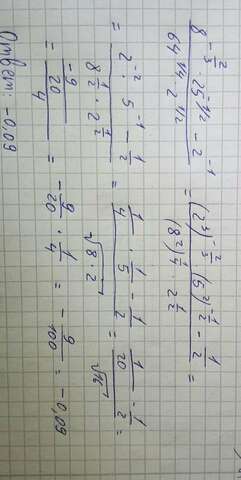 8^(-2/3) · 25^(-1/2) - 2^(-1) / 64^(1/4) · 2^(1/2) = (2^3)^(-2/3) · (5^2)^(-1/2) - 1/2 / (8^2)^(1/4) · 2^(1/2) =
= 2^(-2) · 5^(-1) - 1/2 / 8^(1/2) · 2^(1/2) = 1/4 · 1/5 - 1/2 / √(8·2) = 1/20 - 1/2 / √16 =
= -9/20 / 4 = -9/20 · 1/4 = -9/100 = -0,09
Ответ: -0,09